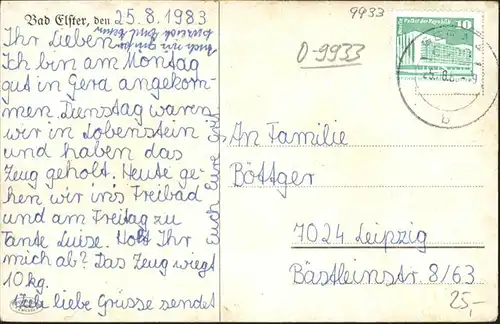 Bad Elster, den 25.8.1983
Ihr Lieben
Ich bin am Montag
gut in Gera angekom-
men. Dienstag waren
wir in Lobenstein
und haben das
Zeug geholt. Heute ge-
hen wir ins Freibad
und am Freitag zu
Tante Luise. Holt Ihr
mich ab? Das Zeug wiegt
10 kg.
liebe Grüsse sendet
Euch Eure
9933
D-9933
10
b
An Familie
Böttger
7024 Leipzig
Bästleinstr. 8/63
25,-